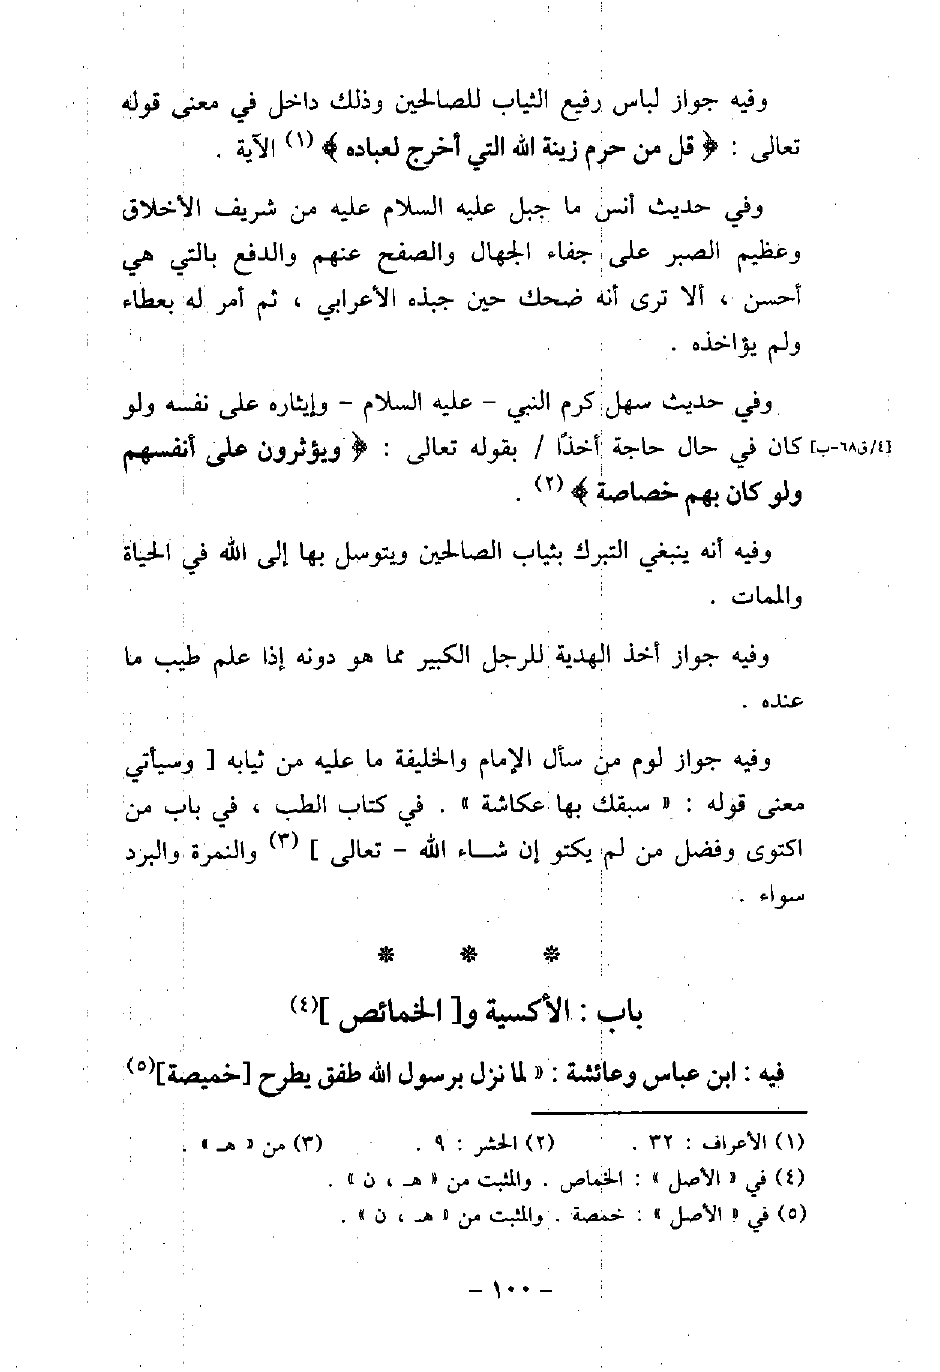 وفيه جواز لباس رفيع الثياب للصالحين وذلك داخل في معنى قوله
تعالى : ﴿ قل من حرم زينة الله التي أخرج لعباده ﴾ (١) الآية .
وفي حديث أنس ما جبل عليه السلام عليه من شريف الأخلاق
وعظيم الصبر على جفاء الجهال والصفح عنهم والدفع بالتي هي
أحسن ، ألا ترى أنه ضحك حين جبذه الأعرابي ، ثم أمر له بعطاء
ولم يؤاخذه .
وفي حديث سهل كرم النبي - عليه السلام - وإيثاره على نفسه ولو
[٤/ق٦٨-ب] كان في حال حاجة أخذًا / بقوله تعالى : ﴿ ويؤثرون على أنفسهم
ولو كان بهم خصاصة ﴾ (٢) .
وفيه أنه ينبغي التبرك بثياب الصالحين ويتوسل بها إلى الله في الحياة
والممات .
وفيه جواز أخذ الهدية للرجل الكبير مما هو دونه إذا علم طيب ما
عنده .
وفيه جواز لوم من سأل الإمام والخليفة ما عليه من ثيابه [ وسيأتي
معنى قوله : « سبقك بها عكاشة » . في كتاب الطب ، في باب من
اكتوى وفضل من لم يكتو إن شاء الله - تعالى ] (٣) والنمرة والبرد
سواء .
* * *
باب : الأكسية و[ الخمائص ](٤)
فيه : ابن عباس وعائشة : « لما نزل برسول الله طفق يطرح [خميصة](٥)
(١) الأعراف : ٣٢ . (٢) الحشر : ٩ . (٣) من « هـ » .
(٤) في « الأصل » : الخماص . والمثبت من « هـ ، ن » .
(٥) في « الأصل » : خمصة . والمثبت من « هـ ، ن » .
- ١٠٠ -